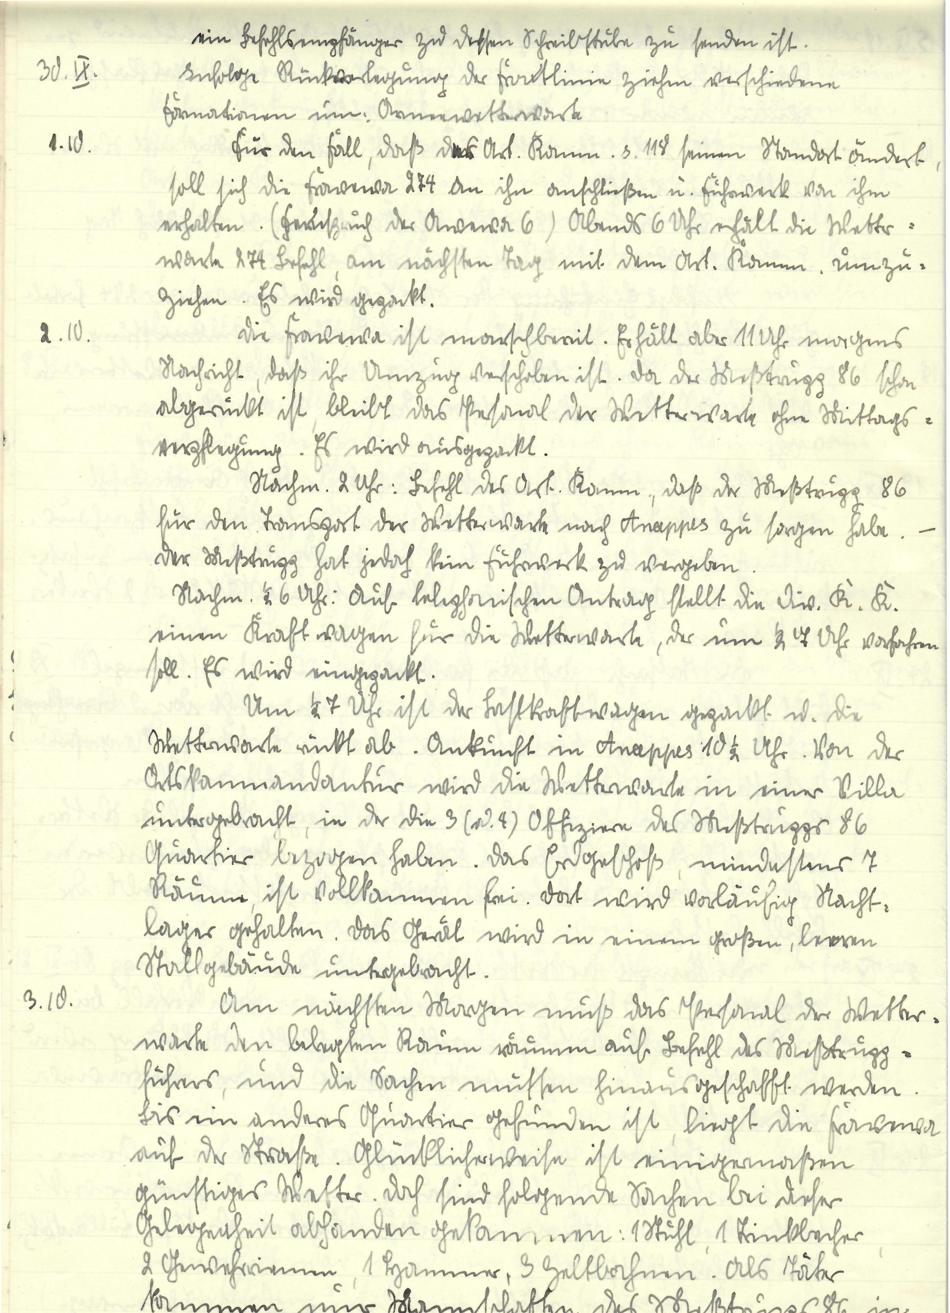 ein Befehlsempfänger zu dessen Schreibstube zu senden ist.
30.IX. Infolge Rückverlegung der Frontlinie ziehen verschiedene
Formationen um: Armeewetterwarte
1.10. Für den Fall, daß das Art. Komm. z. 118 seinen Standort ändert,
soll sich die Frawewa 274 an ihn anschließen u. Fuhrwerk von ihm
erhalten. (Fernspruch der Awewa 6) Abends 6 Uhr erhält die Wetter-
warte 274 Befehl, am nächsten Tag mit dem Art. Komm. umzu-
ziehen. Es wird gepackt.
2.10. Die Frawewa ist marschbereit. Erhält aber 11 Uhr morgens
Nachricht, daß ihr Umzug verschoben ist. Da der Meßtrupp 86 schon
abgerückt ist, bleibt das Personal der Wetterwarte ohne Mittags-
verpflegung. Es wird ausgepackt.
Nachm. 2 Uhr: Befehl des Art. Komm., daß der Meßtrupp 86
für den Transport der Wetterwarte nach Anappes zu sorgen habe. —
Der Meßtrupp hat jedoch kein Fuhrwerk zu vergeben.
Nachm. ½ 6 Uhr: Auf telephonischen Antrag stellt die Div. K. K.
einen Kraftwagen für die Wetterwarte, der um ½ 7 Uhr vorfahren
soll. Es wird eingepackt.
Um ½ 7 Uhr ist der Lastkraftwagen gepackt u. die
Wetterwarte rückt ab. Ankunft in Anappes 10 ½ Uhr. Von der
Ortskommandantur wird die Wetterwarte in einer Villa
untergebracht, in der die 3 (od. 4) Offiziere des Meßtrupps 86
Quartier bezogen haben. Das Erdgeschoß, mindestens 7
Räume, ist vollkommen frei. Dort wird vorläufig Nacht-
lager gehalten. Das Gerät wird in einem großen, leeren
Stallgebäude untergebracht.
3.10. Am nächsten Morgen muß das Personal der Wetter-
warte den belegten Raum räumen auf Befehl des Meßtrupp-
führers, und die Sachen müssen hinausgeschafft werden.
Bis ein anderes Quartier gefunden ist, liegt die Frawewa
auf der Straße. Glücklicherweise ist einigermaßen
günstiges Wetter. Doch sind folgende Sachen bei dieser
Gelegenheit abhanden gekommen: 1 Stuhl, 1 Trinkbecher,
2 Gewehrriemen, 1 Hammer, 3 Zeltbahnen. Als Täter
kommen nur Mannschaften des Meßtrupps 86 in